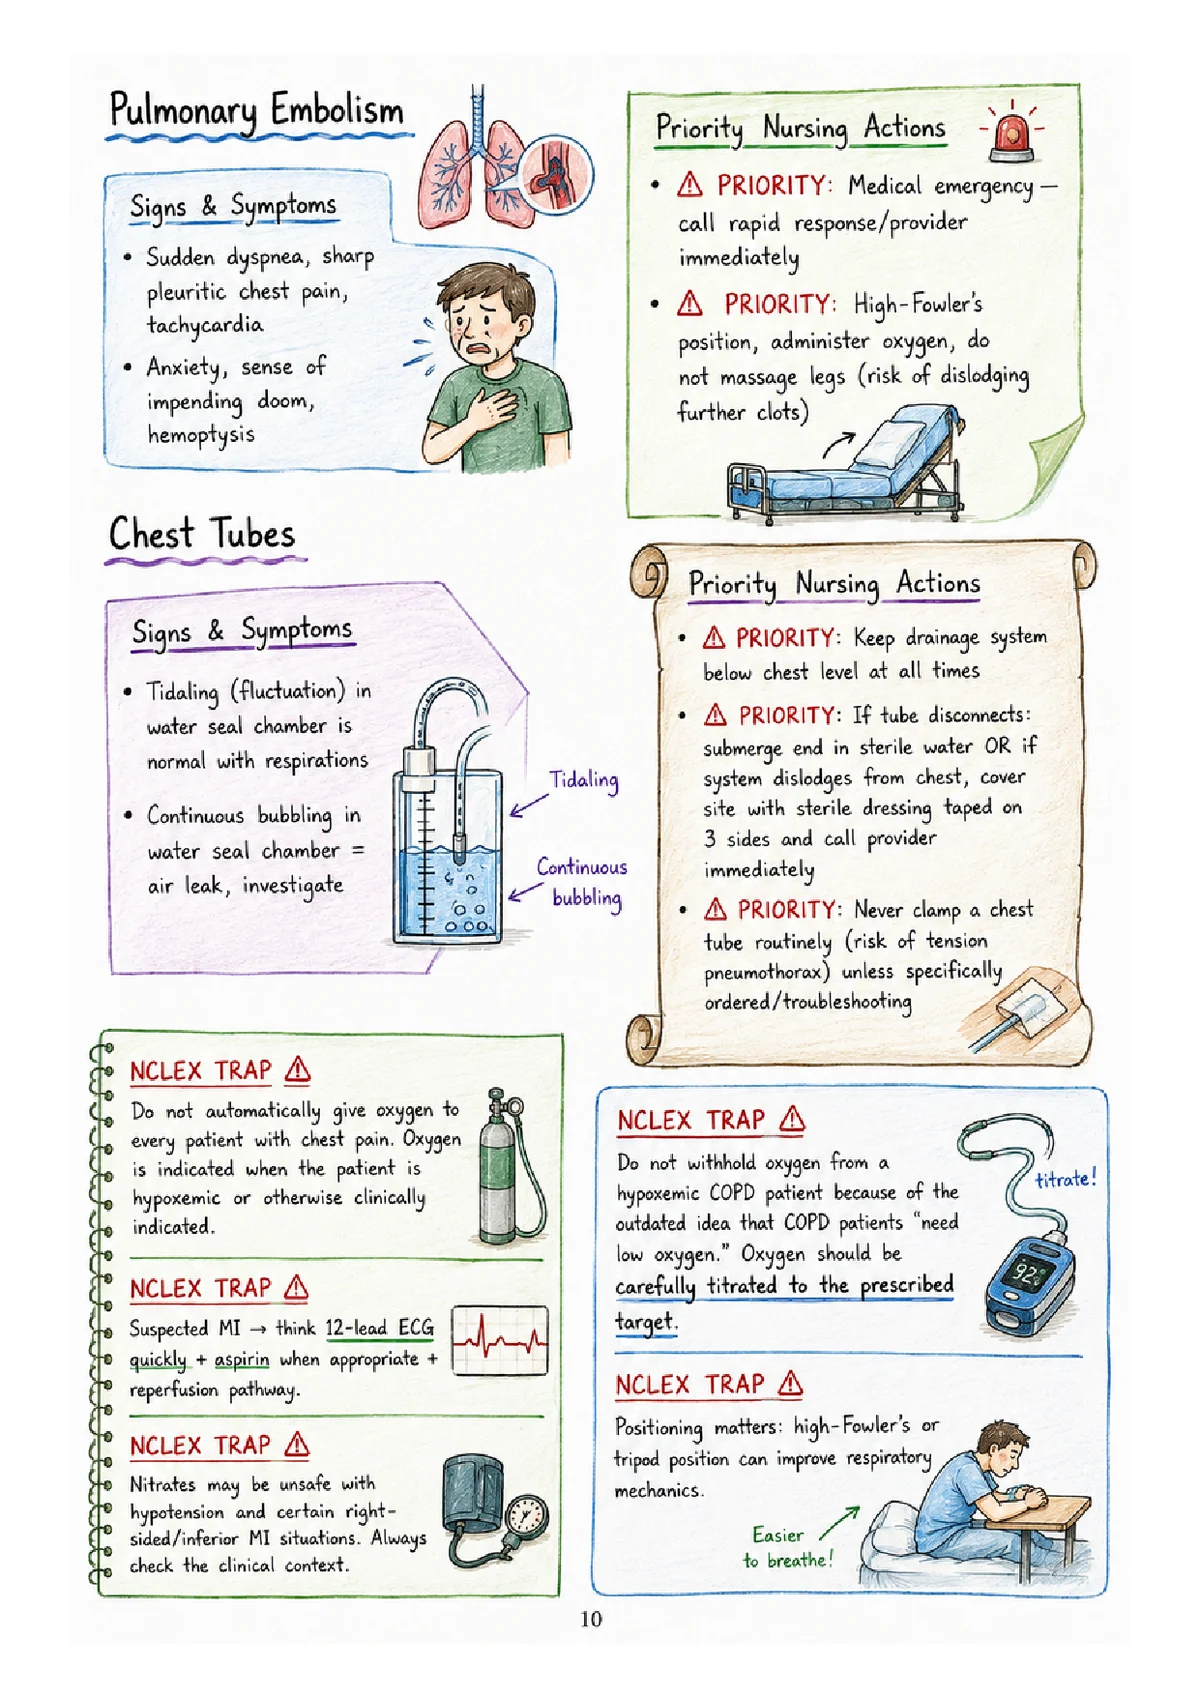 Pulmonary Embolism
Signs & Symptoms
• Sudden dyspnea, sharp
pleuritic chest pain,
tachycardia
• Anxiety, sense of
impending doom,
hemoptysis
Priority Nursing Actions
• ⚠ PRIORITY: Medical emergency —
call rapid response/provider
immediately
• ⚠ PRIORITY: High-Fowler's
position, administer oxygen, do
not massage legs (risk of dislodging
further clots)
Chest Tubes
Signs & Symptoms
• Tidaling (fluctuation) in
water seal chamber is
normal with respirations
• Continuous bubbling in
water seal chamber =
air leak, investigate
Tidaling
Continuous
bubbling
Priority Nursing Actions
• ⚠ PRIORITY: Keep drainage system
below chest level at all times
• ⚠ PRIORITY: If tube disconnects:
submerge end in sterile water OR if
system dislodges from chest, cover
site with sterile dressing taped on
3 sides and call provider
immediately
• ⚠ PRIORITY: Never clamp a chest
tube routinely (risk of tension
pneumothorax) unless specifically
ordered/troubleshooting
NCLEX TRAP ⚠
Do not automatically give oxygen to
every patient with chest pain. Oxygen
is indicated when the patient is
hypoxemic or otherwise clinically
indicated.
NCLEX TRAP ⚠
Suspected MI → think 12-lead ECG
quickly + aspirin when appropriate +
reperfusion pathway.
NCLEX TRAP ⚠
Nitrates may be unsafe with
hypotension and certain right-
sided/inferior MI situations. Always
check the clinical context.
NCLEX TRAP ⚠
Do not withhold oxygen from a
hypoxemic COPD patient because of the
outdated idea that COPD patients “need
low oxygen.” Oxygen should be
carefully titrated to the prescribed
target.
titrate!
92%
NCLEX TRAP ⚠
Positioning matters: high-Fowler's or
tripod position can improve respiratory
mechanics.
Easier
to breathe!
10